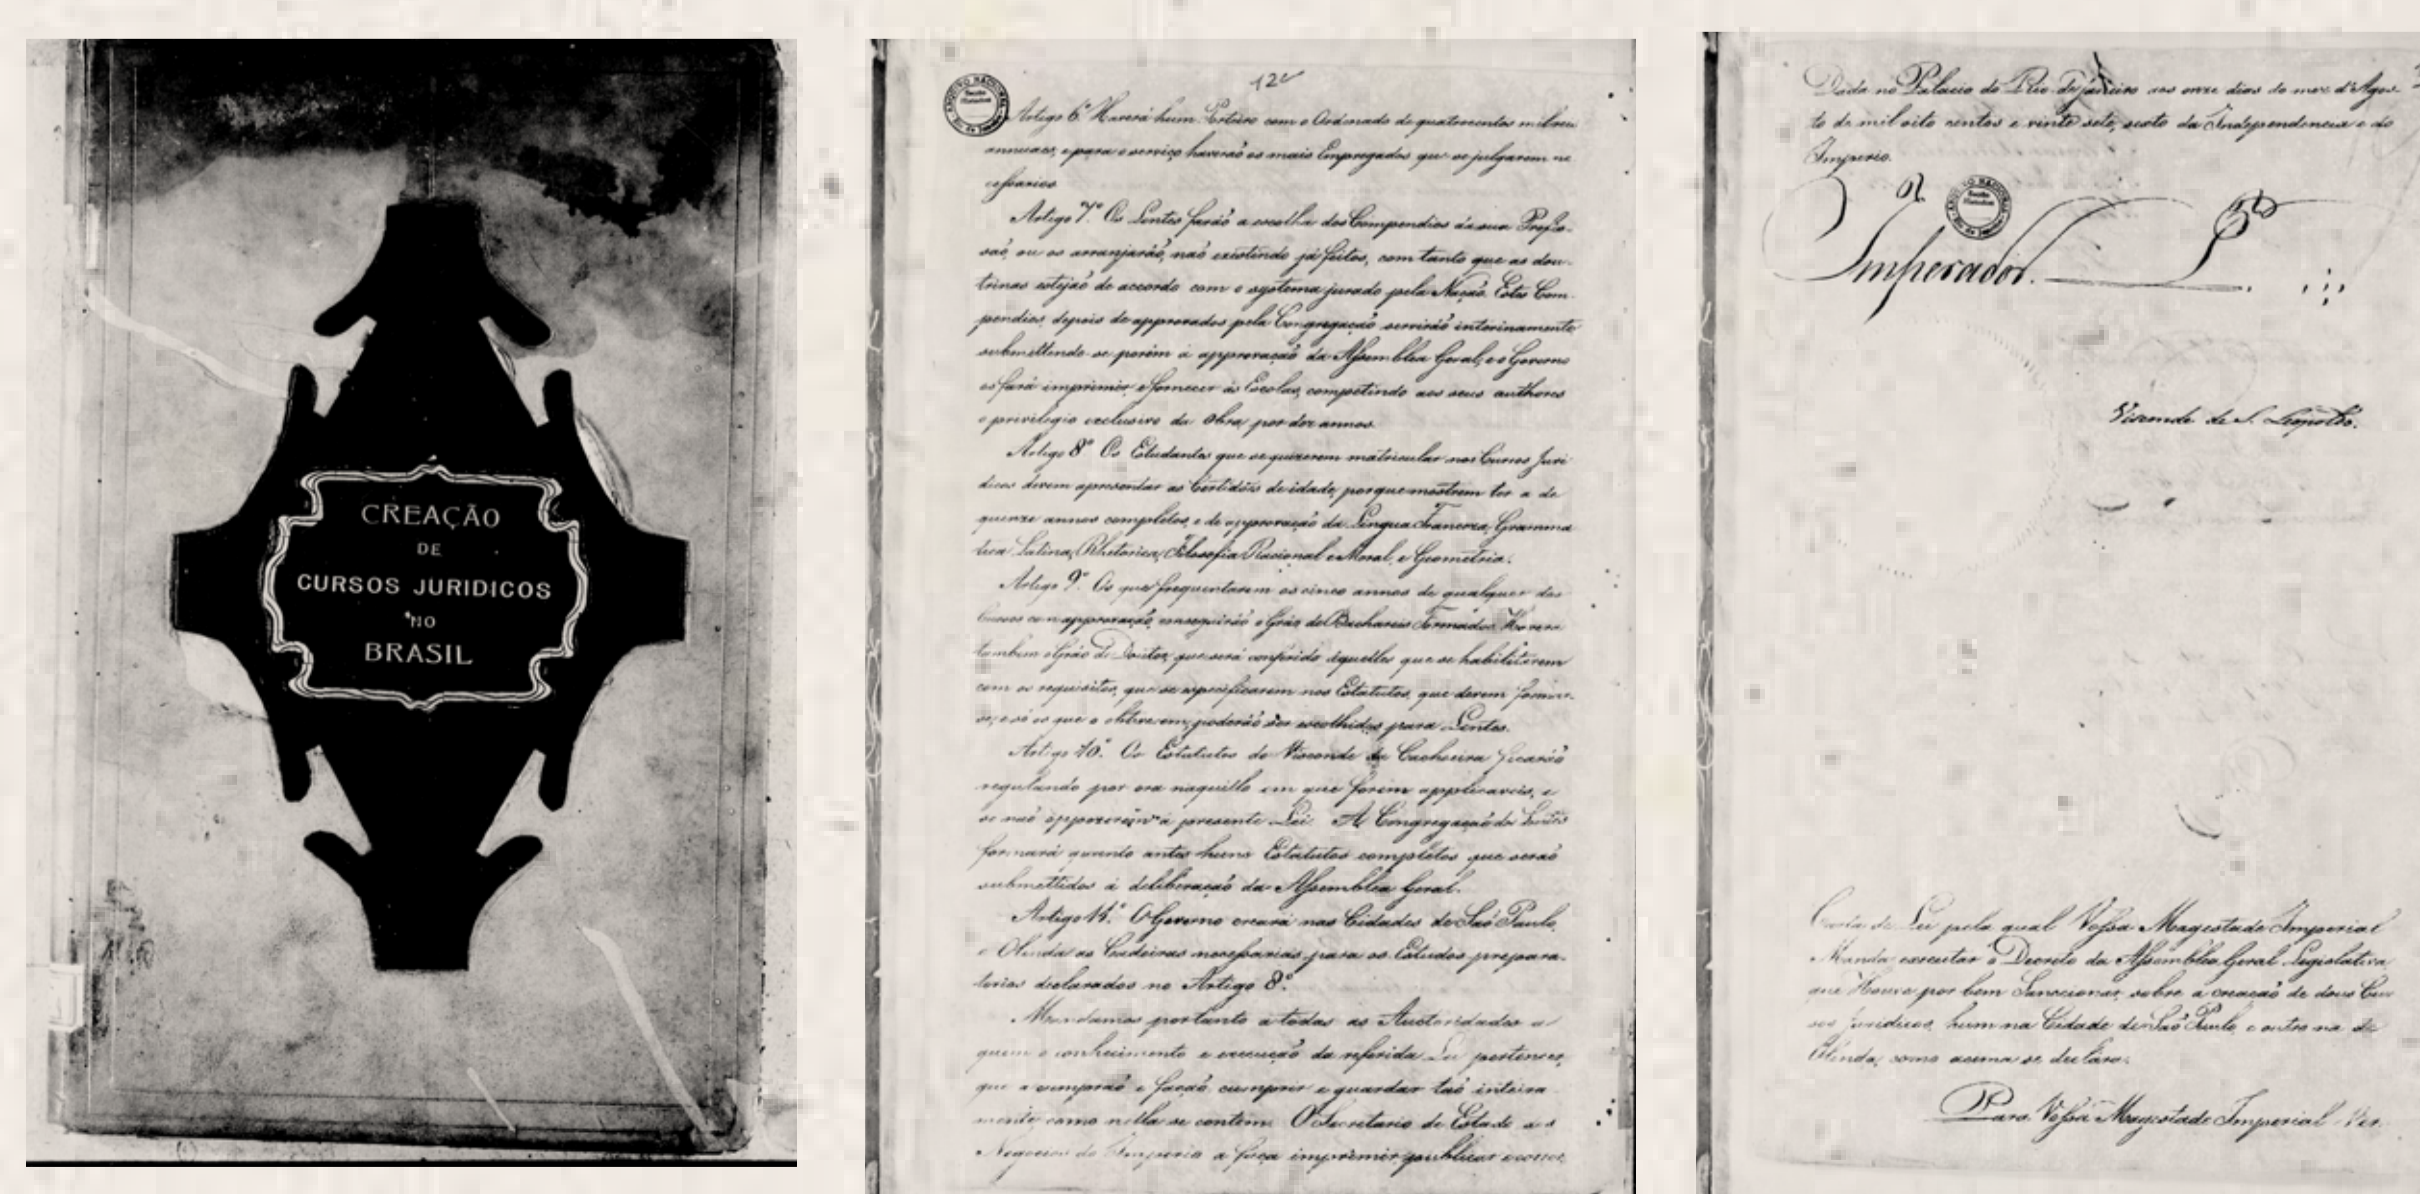 CREAÇÃO
DE
CURSOS JURIDICOS
NO
BRASIL
12
Artigo 6º Haverá hum Porteiro com o Ordenado de quatrocentos mil reis
annuaes, e para o serviço haverão os mais Empregados que se julgarem ne
cessarios.
Artigo 7º Os Lentes farão a escolha dos Compendios da sua Profis-
saõ, ou os arranjaráõ, naõ existindo já feitos, com tanto que as dou-
trinas estejaõ de accordo com o systema jurado pela Naçaõ. Estes Com-
pendios, depois de approvados pela Congregaçaõ servirão interinamente
submettendo-se porém á approvaçaõ da Assemblea Geral, e o Governo
os fará imprimir e fornecer ás Escolas, competindo aos seus authores
o privilegio exclusivo da Obra por dez annos.
Artigo 8º Os Estudantes que se quizerem matricular nos Cursos Juri
dicos devem apresentar as Certidões de idade, porque mostrem ter a de
quinze annos completos, e de approvaçaõ da Lingua Franceza, Gramma
tica Latina, Rhetorica, Filosofia Racional e Moral, e Geometria.
Artigo 9º Os que frequentarem os cinco annos de qualquer dos
Cursos com approvaçaõ, conseguirão o Gráo de Bachareis Formados. Haverá
tambem o Gráo de Doutor, que será conferido áquelles que se habilitarem
com os requisitos, que se especificarem nos Estatutos, que devem formar-
se, e só os que o obtiverem, poderaõ ser escolhidos para Lentes.
Artigo 10º Os Estatutos do Visconde da Cachoeira ficaraõ
regulando por ora naquillo em que forem applicaveis, e
se naõ oppozerem á presente Lei. A Congregaçaõ dos Lentes
formará quanto antes huns Estatutos completos que seraõ
submettidos á deliberaçaõ da Assemblea Geral.
Artigo 11º O Governo creará nas Cidades de Saõ Paulo,
e Olinda as Cadeiras necessarias para os Estudos prepara-
torios declarados no Artigo 8º.
Mandamos portanto a todas as Auctoridades a
quem o conhecimento e execuçaõ da referida Lei pertencer,
que a cumpraõ e façaõ cumprir e guardar taõ inteira
mente como nella se contem. O Secretario de Estado dos
Negocios do Imperio a faça imprimir, publicar e correr.
Dada no Palacio do Rio de Janeiro aos onze dias do mez d'Agos-
to de mil oito centos e vinte sete, sexto da Independencia e do
Imperio.
Imperador
Visconde de S. Leopoldo.
Carta de Lei pela qual Vossa Magestade Imperial
Manda executar o Decreto da Assemblea Geral Legislativa
que Houve por bem Sanccionar, sobre a creaçaõ de dous Cur
sos Juridicos, hum na Cidade de Saõ Paulo, e outro na de
Olinda, como acima se declara.
Para Vossa Magestade Imperial Ver.